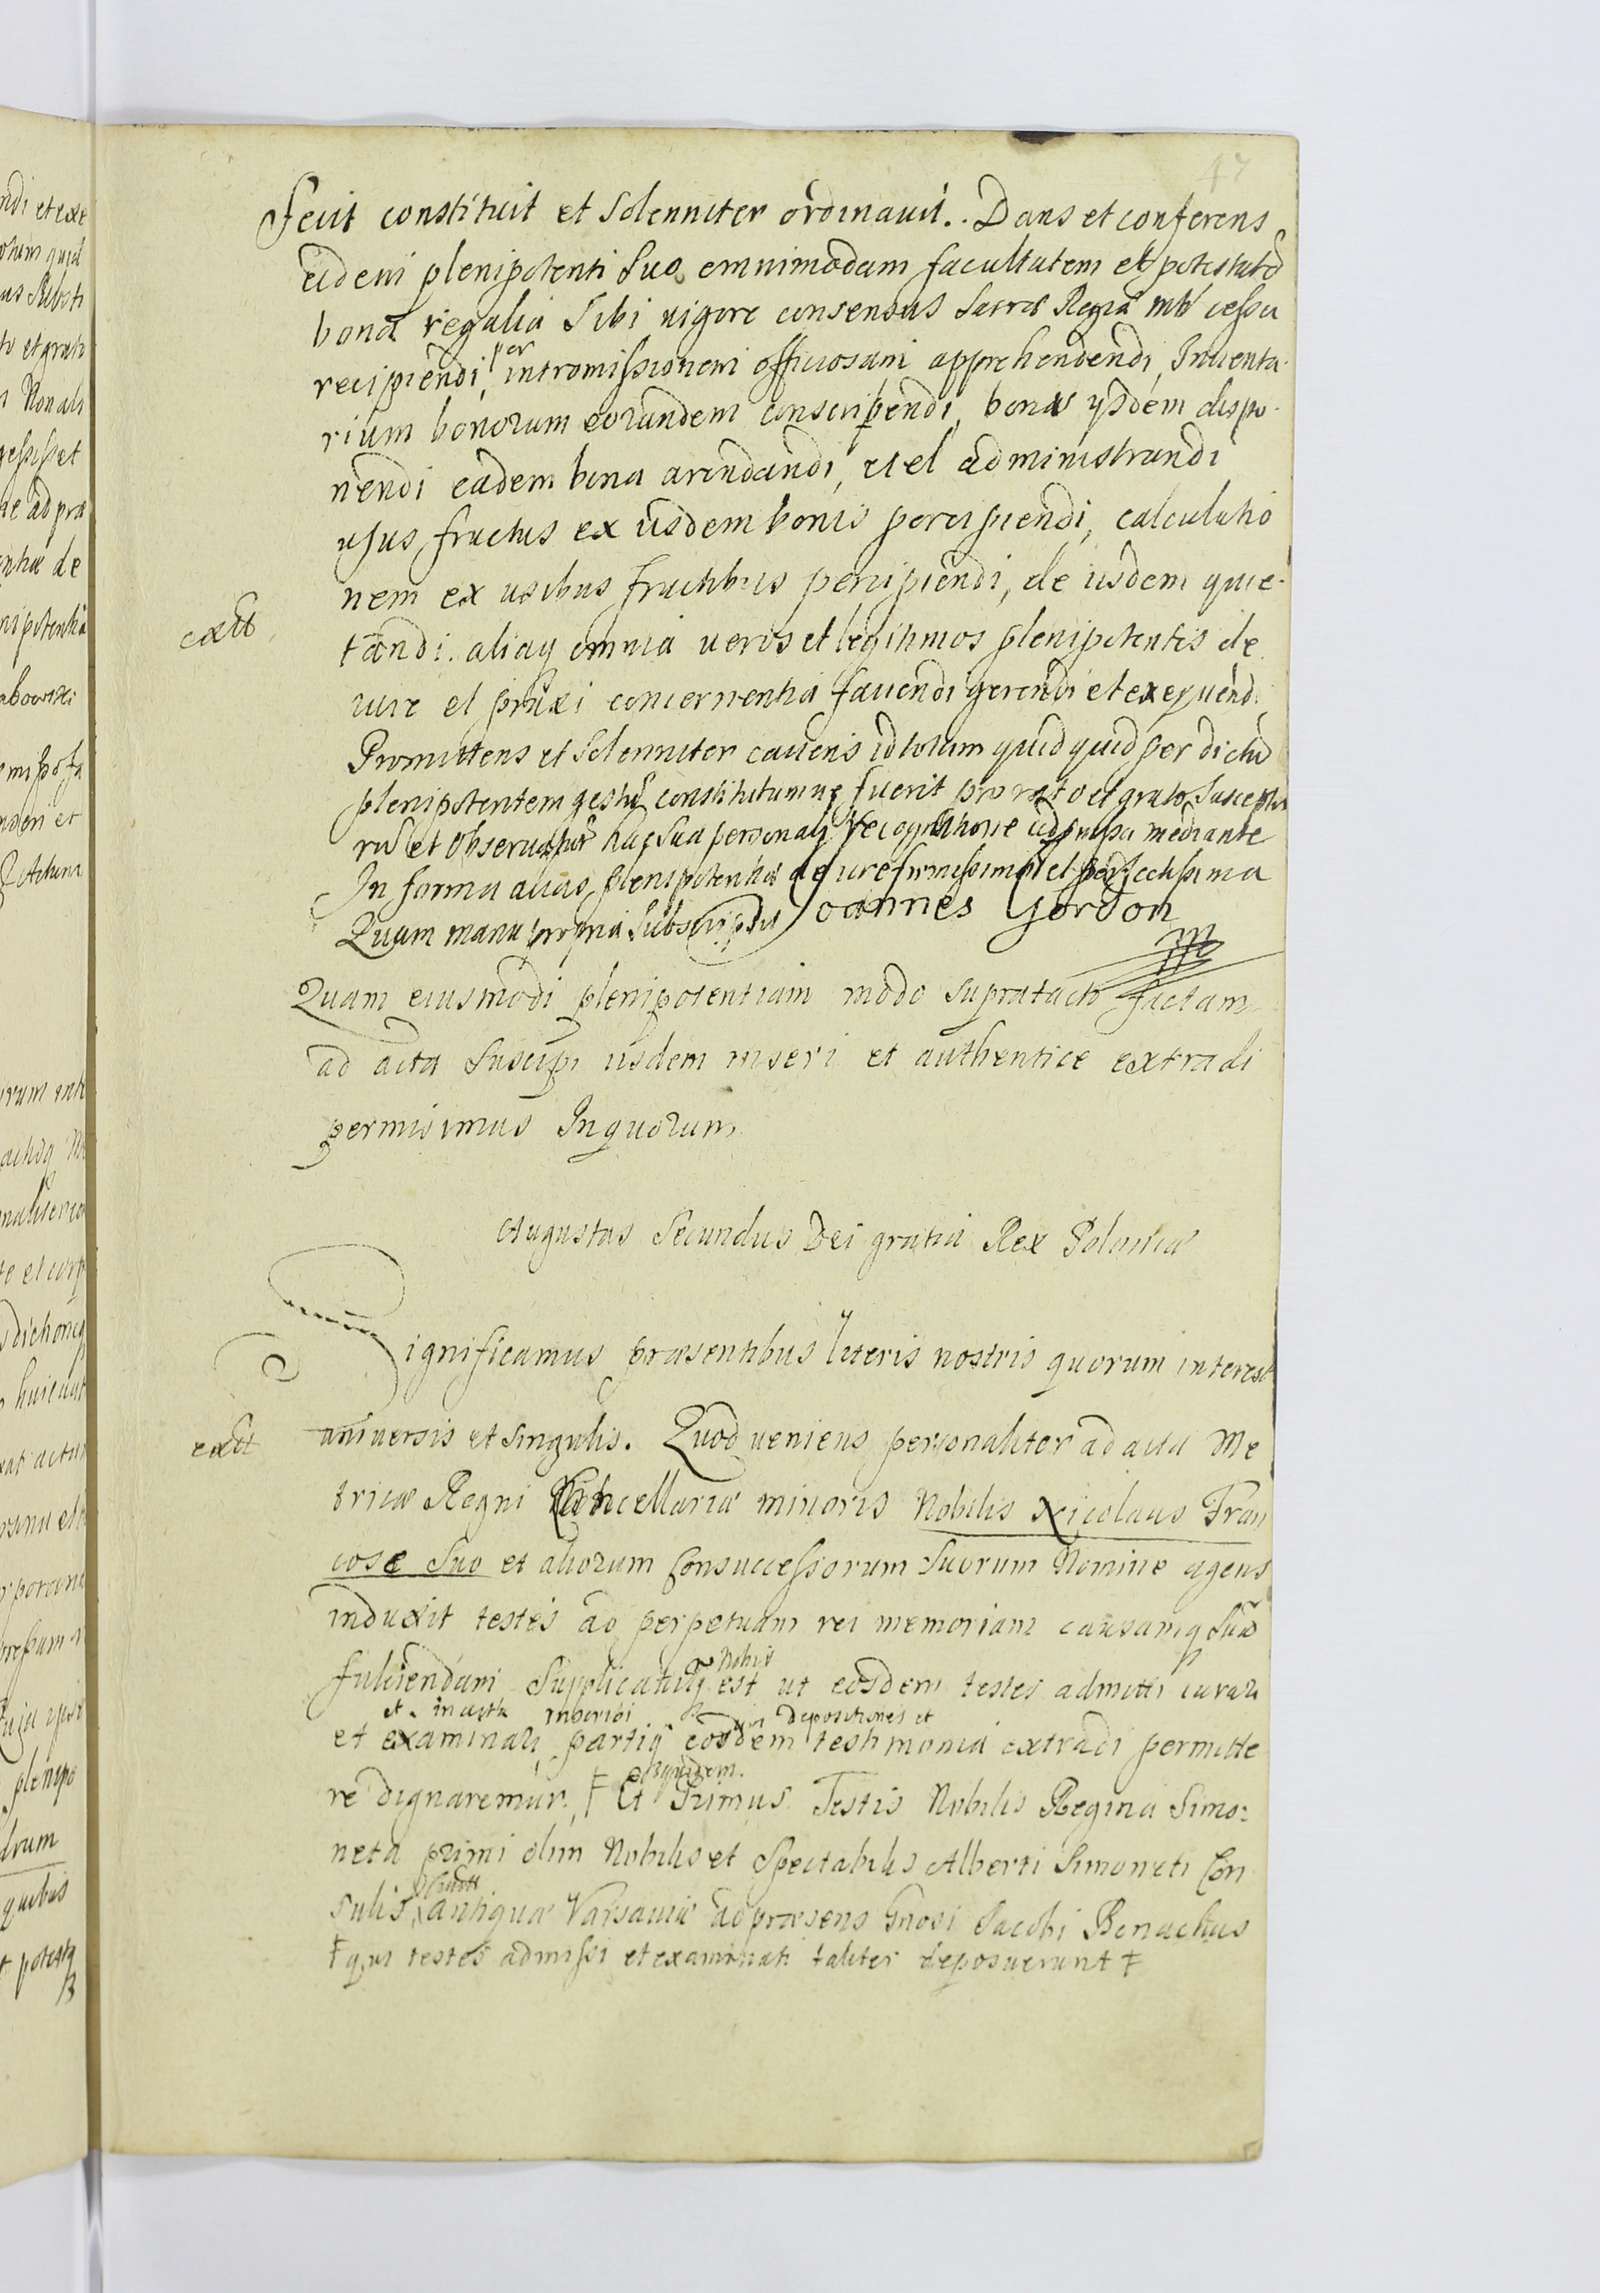 47
Fecit constituit et solenniter ordinavit. Dans et conferens
eidem plenipotenti suo omnimodam facultatem et potestatē
bona regalia sibi vigore consensus Sacræ Regiæ mtis cessa
recipiendi, per intromissionem officiosam apprehendendi, Inventa-
rium bonorum eorundem conscribendi, bonis ysdem dispo-
nendi eadem bona arendandi, vel administrandi
usus fructus ex iisdem bonis percipiendi, calculatio
nem ex usibus fructibus percipiendi, de iisdem quie-
extt
tandi. aliaq omnia veros et legitimos plenipotentes de
iure et praxi concernentia faciendi gerendi et exequendi
Promittens et solenniter cavens id totum quidquid per dictū
plenipotentem gestū constitutumve fuerit pro rato et grato suscepturum
rū et observaturū hac sua personali recognitione ad præmissa mediante
In forma alias plenipotentiæ de iure firmissima et perfectissima
Quam manu propria subscripsit Joannes Gordon
mp
Quam eiusmodi plenipotentiam modo supratacto factam
ad acta suscipi iisdem inseri et authentice extradi
permisimus In quorum
Augustus Secundus Dei gratia Rex Poloniæ
Significamus præsentibus literis nostris quorum interest
extt
universis et singulis. Quod veniens personaliter ad acta Me
tricæ Regni Cancellariæ minoris Nobilis Nicolaus Fran
cose suo et aliorum Consuccessorum suorum Nomine agens
induxit testes ad perpetuam rei memoriam causamq suā
fulciendam Supplicatūq Nobis est ut eosdem testes admitti iurari
et in acta inberibi depositiones et
et examinari, partiq eosdem testimonia extradi permitte
re dignaremur, ‡ Et siquidem Primus Testis Nobilis Regina Simo:
neta primi olim Nobilis et Spectabilis Alberti Simoneti Con
sulis antiquæ Varsaviæ ad præsens Gnosi Jacobi Benachus
‡ qui testes admissi et examinati taliter deposuerunt ‡